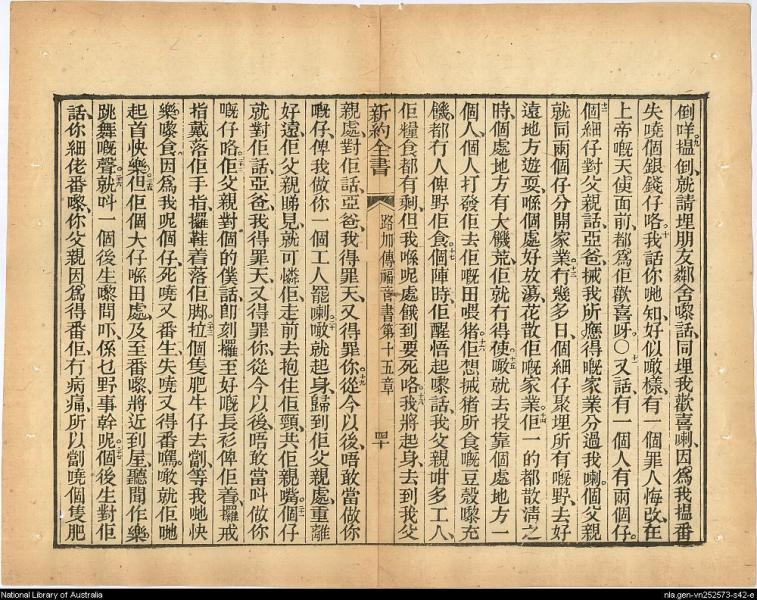 倒咩、揾倒、就請埋朋友鄰舍嚟話、同埋我歡喜喇、因爲我揾番
失嘵個銀錢仔咯、我話你哋知、好似噉樣、有一個罪人悔改、在
上帝嘅天使面前、都爲佢歡喜呀○又話、有一個人有兩個仔、
個細仔對父親話、亞爸、𢬿我所應得嘅家業分過我喇、個父親
就同兩個仔分開家業、有幾多日個細仔聚埋所有嘅野、去好
遠地方遊耍、喺個處好放蕩、花散佢嘅家業、佢一的都散清之
時、個處地方有大饑荒、佢就冇得使、噉就去投靠個處地方一
個人、個人打發佢去佢嘅田喂猪、佢想𢬿猪所食嘅豆殼嚟充
饑、都冇人俾野佢食、個陣時、佢醒悟起嚟話、我父親咁多工人、
佢糧食都有剩、但我喺呢處餓到要死咯、我將起身、去到我父
新約全書 路加傳福音書第十五章 四十
親處、對佢話、亞爸、我得罪天、又得罪你、從今以後、唔敢當做你
嘅仔、俾我做你一個工人罷喇、噉就起身、歸到佢父親處、重離
好遠、佢父親睇見、就可憐佢、走前去抱住佢頸、共佢親嘴、個仔
就對佢話、亞爸、我得罪天、又得罪你、從今以後、唔敢當叫做你
嘅仔咯、佢父親對個的僕話、卽刻攞至好嘅長衫俾佢着、攞戒
指戴落佢手指、攞鞋着落佢脚、拉個隻肥牛仔去劏、等我哋快
樂嚟食、因爲我呢個仔、死嘵又番生、失嘵又得番嘿、噉就佢哋
起首快樂、但佢個大仔喺田處、及至番嚟、將近到屋、聽聞作樂
跳舞嘅聲、就呌一個後生嚟問吓、係乜野事幹呢、個後生對佢
話、你細佬番嚟、你父親因爲得番佢、冇病痛、所以劏嘵個隻肥
National Library of Australia
nla.gen-vn252573-s42-e